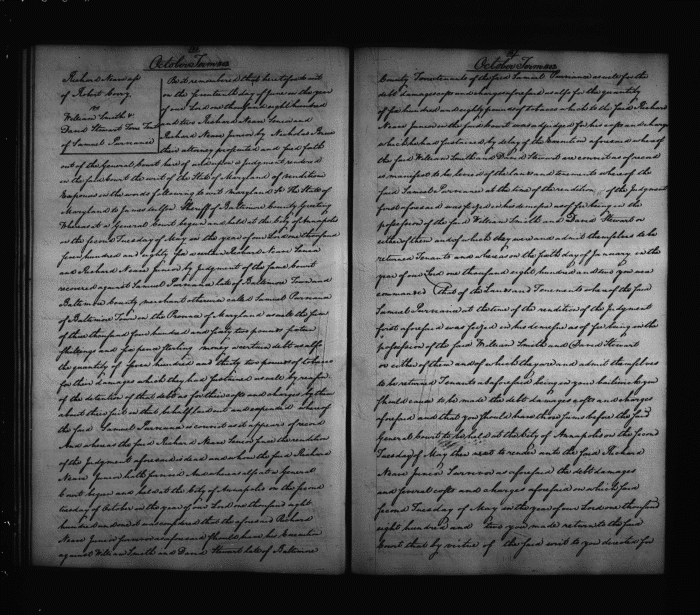 October Term 1802
Richard Neave ass
of Robert
vs
William Smith &
David Stewart Terre Tenants
of Samuel Purviance
Be it remembered that heretofore to wit
on the fourteenth day of June in the year
of our Lord one thousand eight hundred
and two Richard Neave Senior and
Richard Neave Junior by Nicholas Brice
their attorney presented and filed forth
out of the General Court here of a judgment rendered
in the said Court the writ of the State of Maryland of venditioni
Exponas in the words following to wit Maryland Sc The State of
Maryland to James Sheriff of Baltimore County Greeting
Whereas at a General Court begun and held at the City of Annapolis
on the second Tuesday of May in the year of our Lord one thousand
seven hundred and eighty Richard Neave Senior
and Richard Neave Junior by judgment of the same Court
recovered against Samuel Purviance late of Baltimore Town and
Baltimore County merchant otherwise called Samuel Purviance
of Baltimore Town in the Province of Maryland as well the sum
of three thousand four hundred and forty two pounds
shillings and six pence sterling money a certain debt as also
the quantity of seven hundred and thirty two pounds of tobacco
for their damages which they had sustained as well by reason
of the detention of that debt as for their costs and charges by them
about their suit in that behalf laid out and expended whereof
the said Samuel Purviance is convict as it appears of record
And whereas the said Richard Neave Senior since the rendition
of the Judgment aforesaid is dead and whom the said Richard
Neave Junior hath survived And whereas also at a General
Court begun and held at the City of Annapolis on the second
Tuesday of October in the year of our Lord one thousand eight
hundred and it was considered that the aforesaid Richard
Neave Junior survivor as aforesaid should have his Execution
against William Smith and David Stewart late of Baltimore
October Term 1802
County Terretenants of the said Samuel Purviance as well for the
debt damages costs and charges aforesaid as also for the quantity
of five hundred and eighty pounds of tobacco which to the said Richard
Neave Junior in the said Court was adjudged for his costs and charges
which he had sustained by delay of the execution aforesaid whereof
the said William Smith and David Stewart are convict as of record
is manifest to be levied of the lands and tenements whereof the
said Samuel Purviance at the time of the rendition of the Judgment
first aforesaid was seized in his demesne as of fee being in the
possession of the said William Smith and David Stewart or
either of them and of which they were and admit themselves to be
returned Tenants and whereas on the day of January in the
year of our Lord one thousand eight hundred and two you were
commanded That of the Lands and Tenements whereof the said
Samuel Purviance at the time of the rendition of the Judgment
first aforesaid was seized in his demesne as of fee being in the
possession of the said William Smith and David Stewart
or either of them and of which they were and admit themselves
to be returned Tenants as aforesaid being in your bailiwick you
should cause to be made the debt damages costs and charges
aforesaid and that you should have those sums before the said
General Court to be held at the City of Annapolis on the second
Tuesday of May then next to render unto the said Richard
Neave Junior Survivor as aforesaid the debt damages
and several costs and charges aforesaid on which said
second Tuesday of May in the year of our Lord one thousand
eight hundred and two you made return to the said
Court that by virtue of the said writ to you directed for